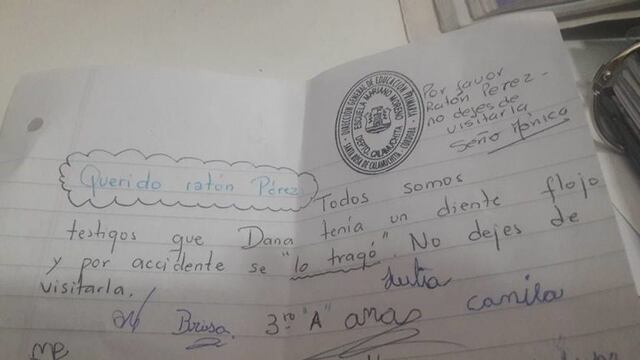 DIRECCIÓN GENERAL DE EDUCACIÓN PRIMARIA
ESCUELA MARIANO MORENO
DEPTO. CALAMUCHITA
SANTA ROSA DE CALAMUCHITA - CÓRDOBA
Por favor
Ratón Perez -
no dejes de
visitarla
Seño Mónica
Querido ratón Pérez
Todos somos
testigos que Dana tenía un diente flojo
y por accidente se "lo tragó". No dejes de
visitarla.
Julia
Brisa. 3ro "A" camila